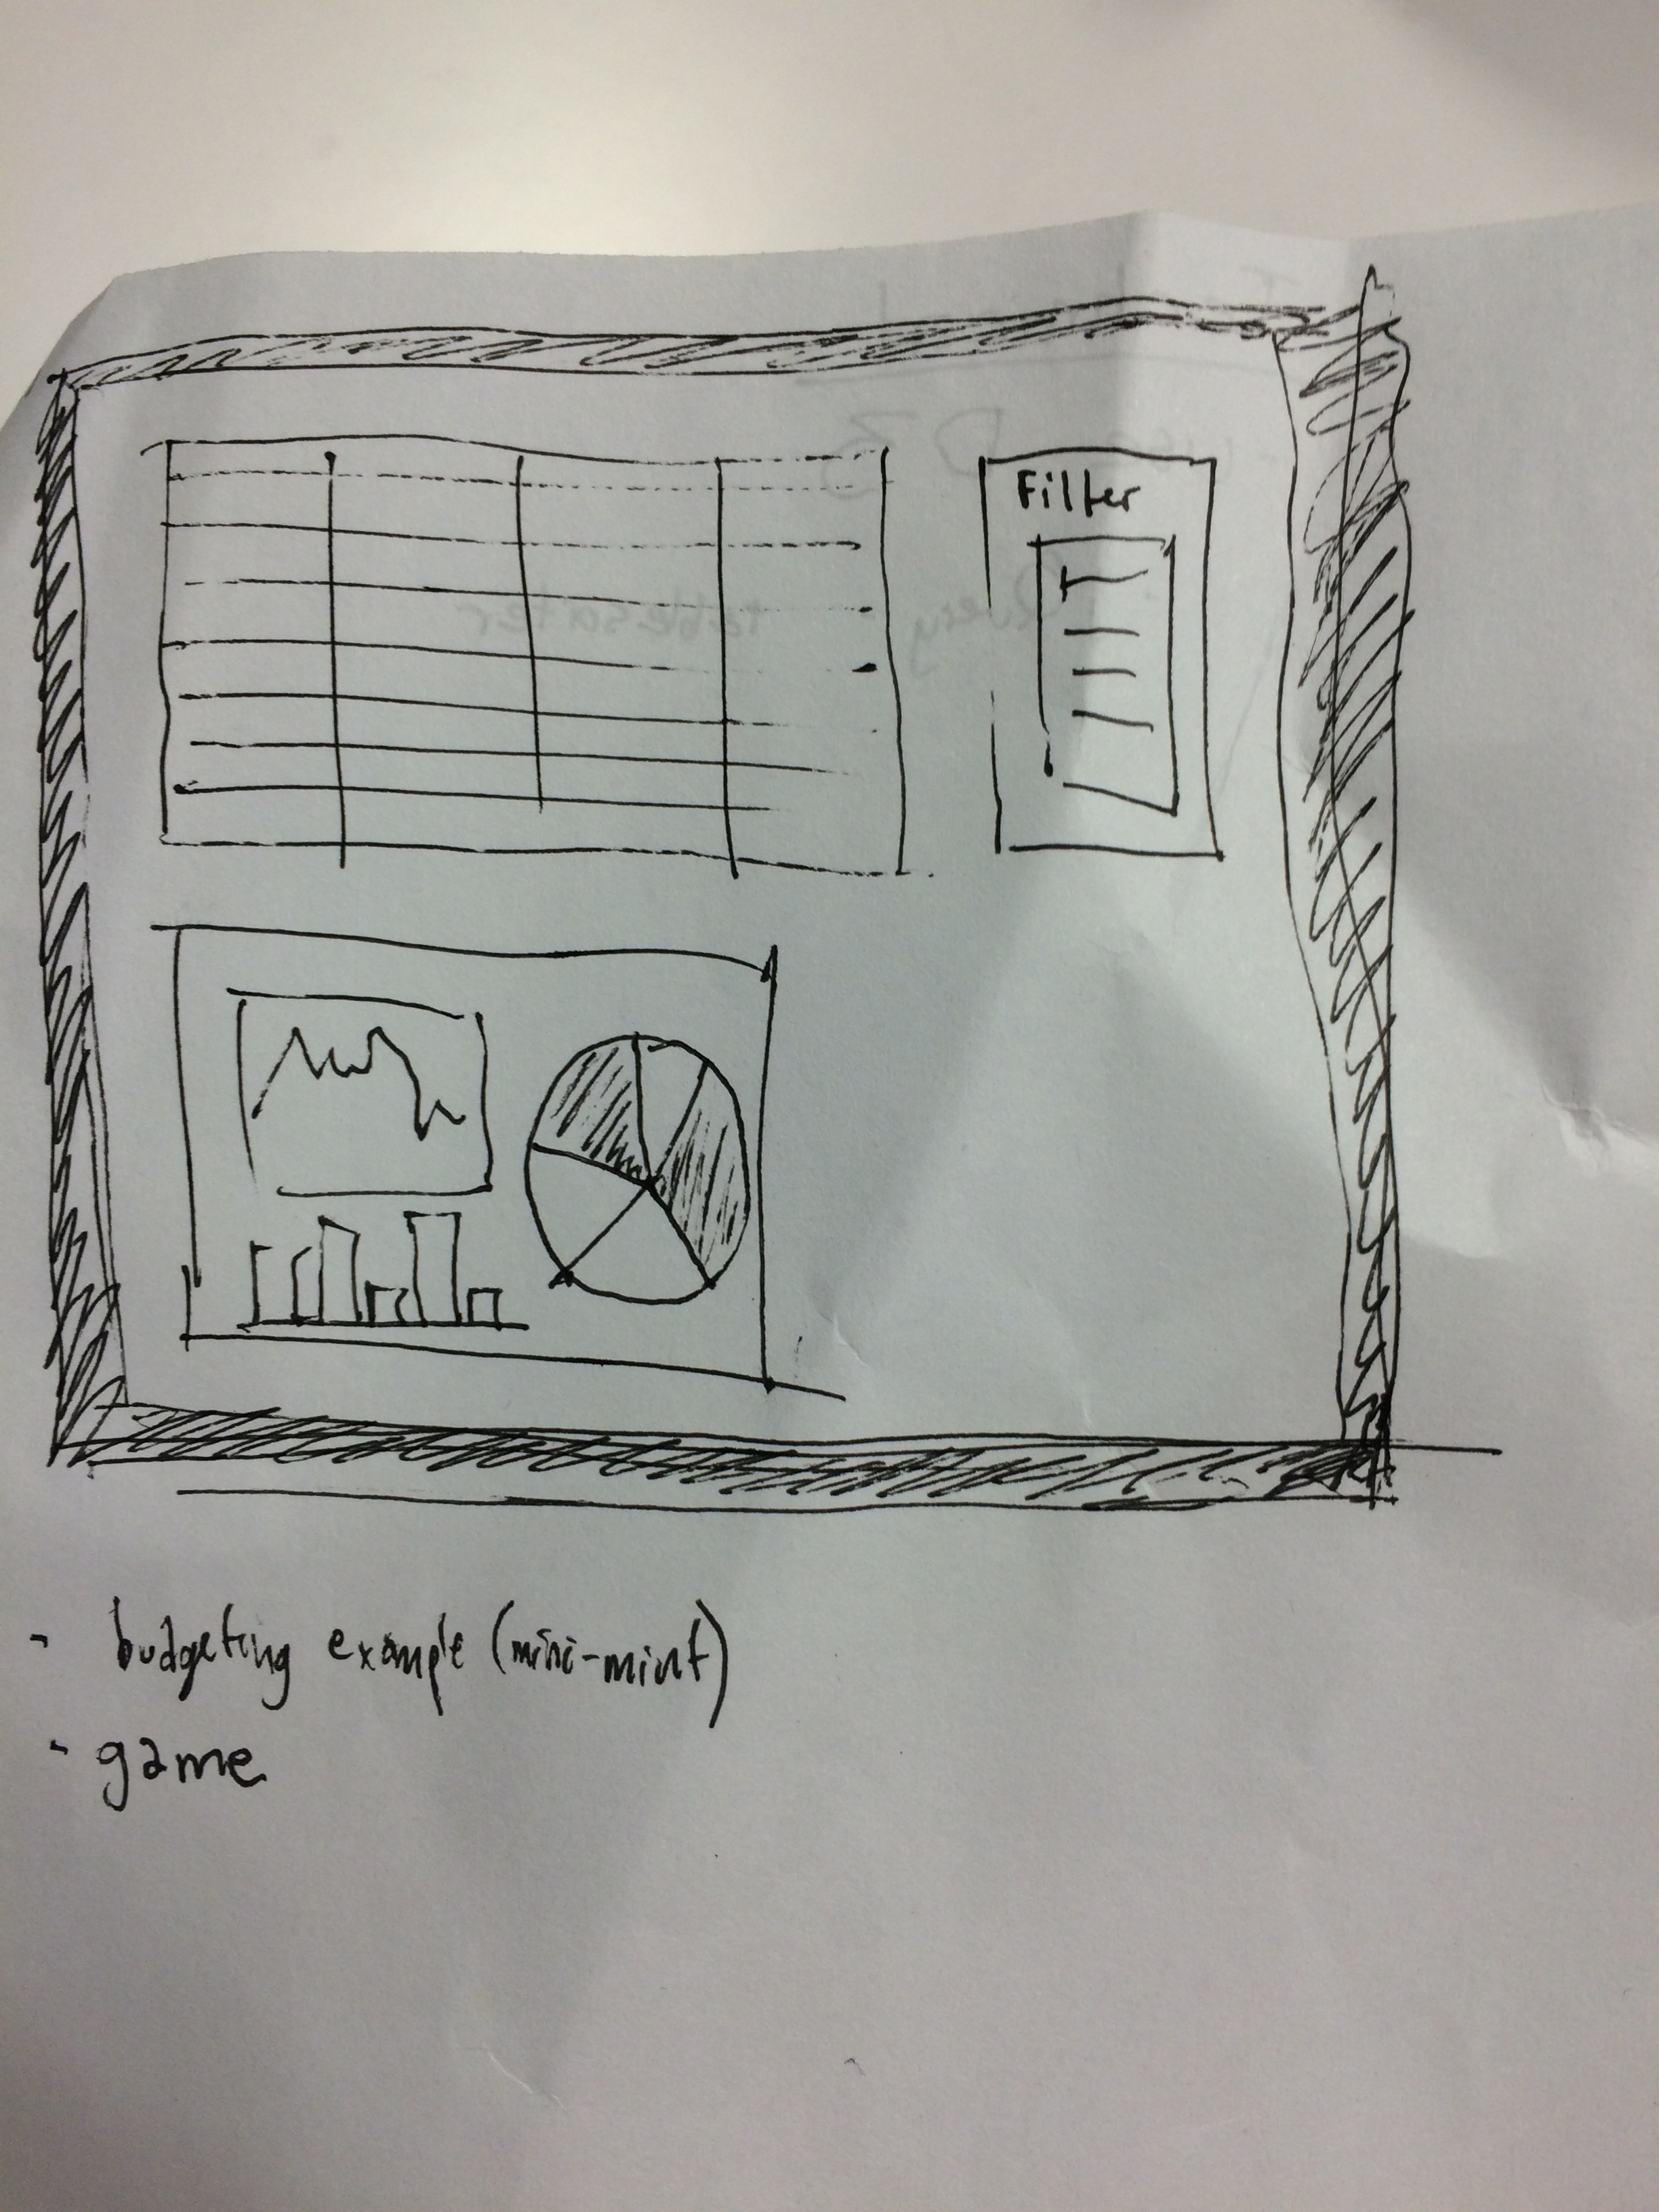 Filter
- budgeting example (mini-mint)
- game